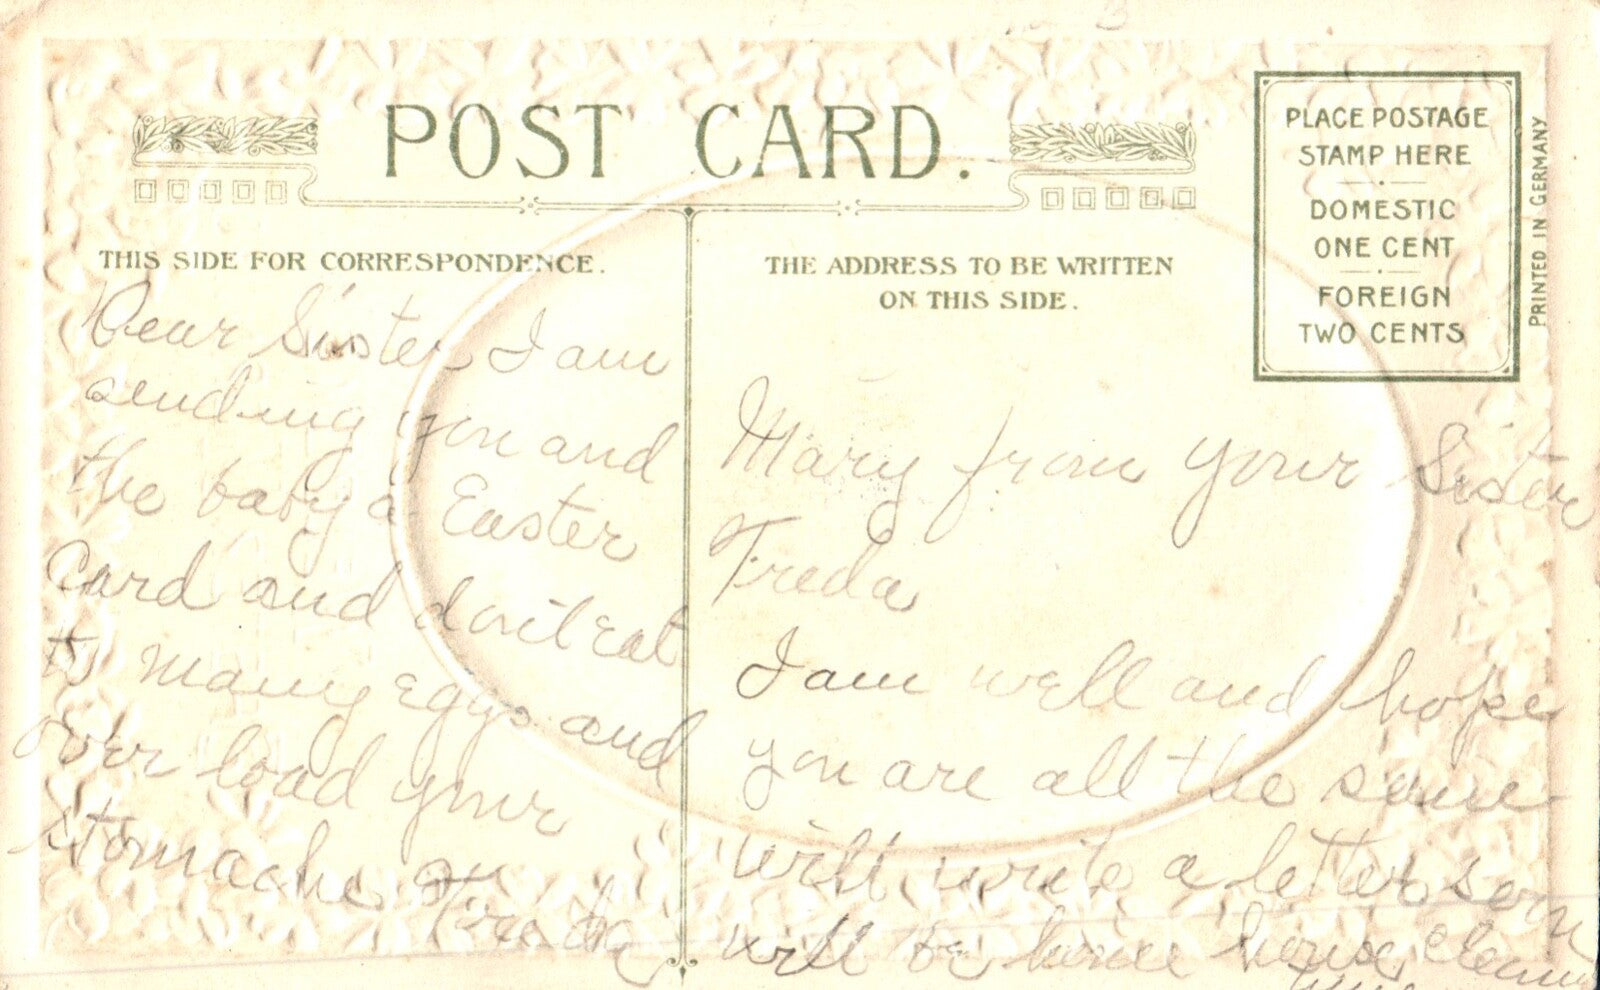 POST CARD.
THIS SIDE FOR CORRESPONDENCE.
Dear Sister I am
sending you and
the baby a Easter
Card and don't eat
to many eggs and
over load your
stomache
Freda
THE ADDRESS TO BE WRITTEN
ON THIS SIDE.
Mary from your Sister
Freda
I am well and hope
you are all the same
will write a letter soon
will be home house
PLACE POSTAGE
STAMP HERE
DOMESTIC
ONE CENT
FOREIGN
TWO CENTS
PRINTED IN GERMANY